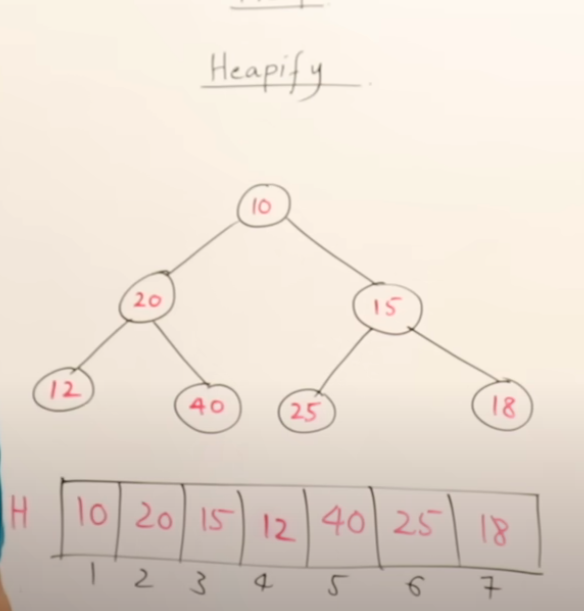 Heapify
10
20
15
12
40
25
18
H 10 20 15 12 40 25 18
1 2 3 4 5 6 7